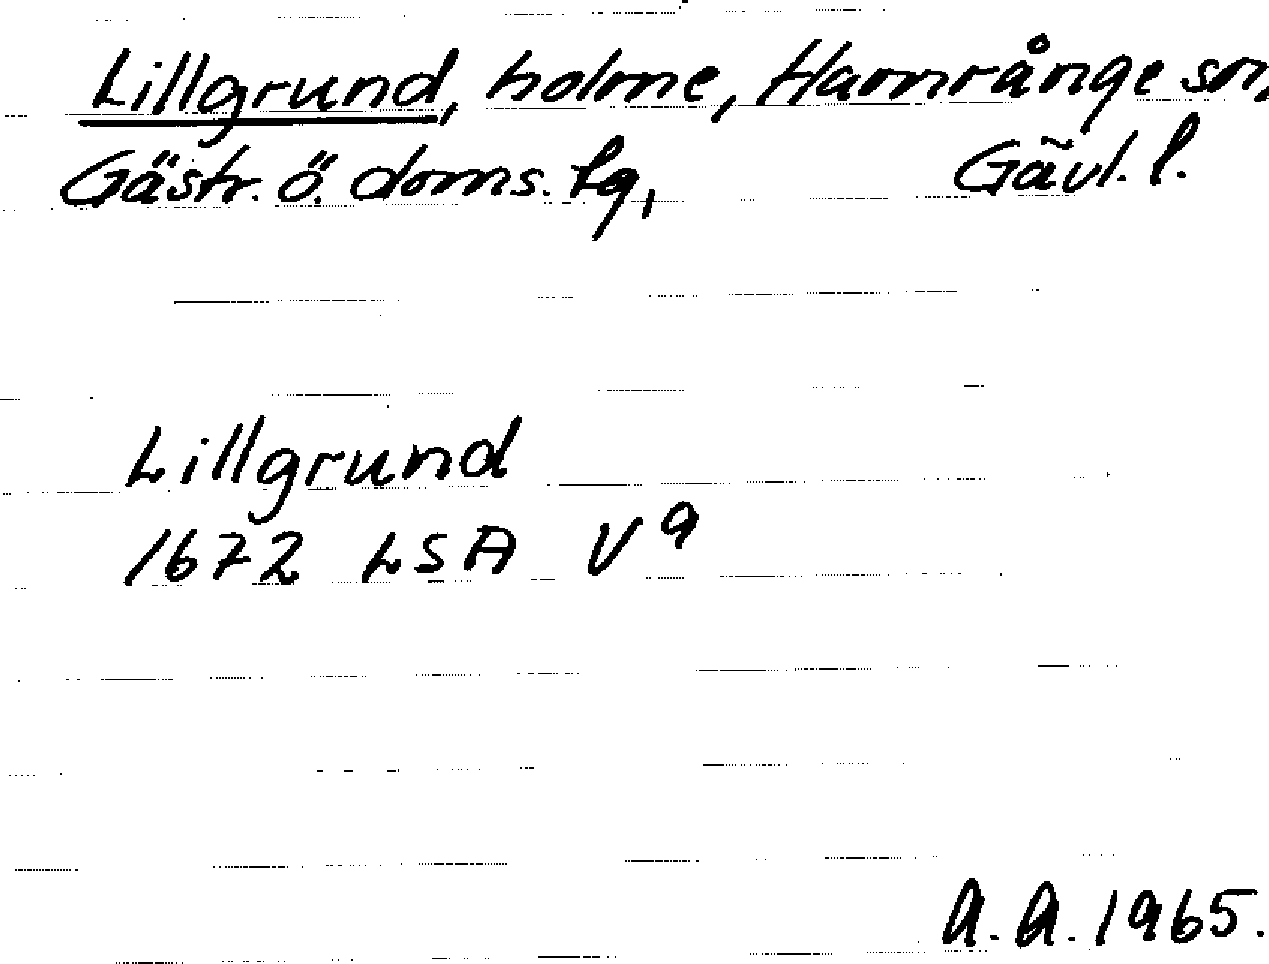 Lillgrund, holme, Hamrånge sn,
Gästr. ö. doms. lg, Gävl. l.
Lillgrund
1672 LSA V 9
A. A. 1965.